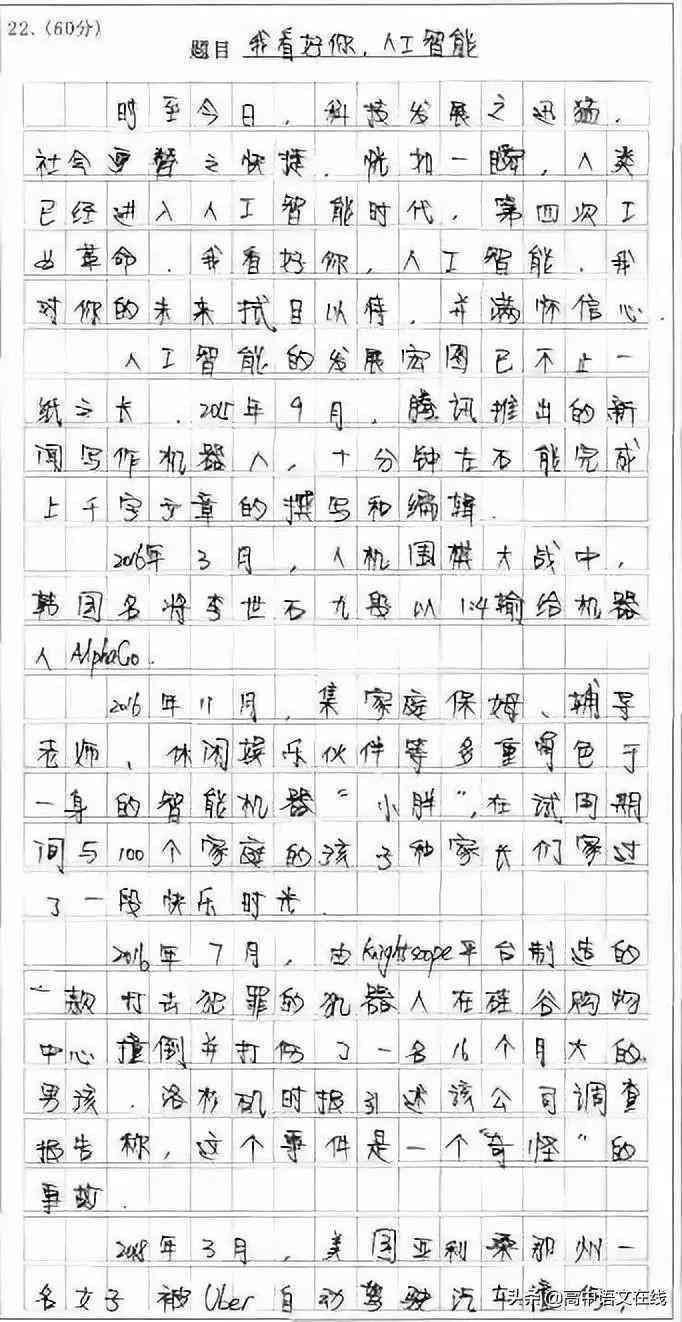 22.(60分)
题目 我看好你，人工智能
时至今日，科技发展之迅猛，
社会更替之快捷，恍如一瞬，人类
已经进入人工智能时代，第四次工
业革命。我看好你，人工智能，我
对你的未来拭目以待，并满怀信心。
人工智能的发展宏图已不止一
纸之长。2015年9月，腾讯推出的新
闻写作机器人，十分钟左右能完成
上千字文章的撰写和编辑。
2016年3月，人机围棋大战中，
韩国名将李世石九段以1:4输给机器
人AlphaGo.
2016年11月，集家庭保姆、辅导
老师、休闲娱乐伙伴等多重角色于
一身的智能机器“小胖”，在试用期
间与100个家庭的孩子和家长们家过
了一段快乐时光
2016年7月，由Knightscope平台制造的
一款打击犯罪的机器人在硅谷购物
中心撞倒并打伤了一名16个月大的
男孩。洛杉矶时报引述该公司调查
报告称，这个事件是一个“奇怪”的
事故.
2018年3月，美国亚利桑那州一
名女子被Uber自动驾驶汽车撞伤，
头条@高中语文在线